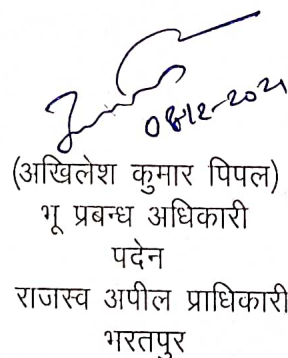 08-12-2021
(अखिलेश कुमार पिपल)
भू प्रबन्ध अधिकारी
पदेन
राजस्व अपील प्राधिकारी
भरतपुर